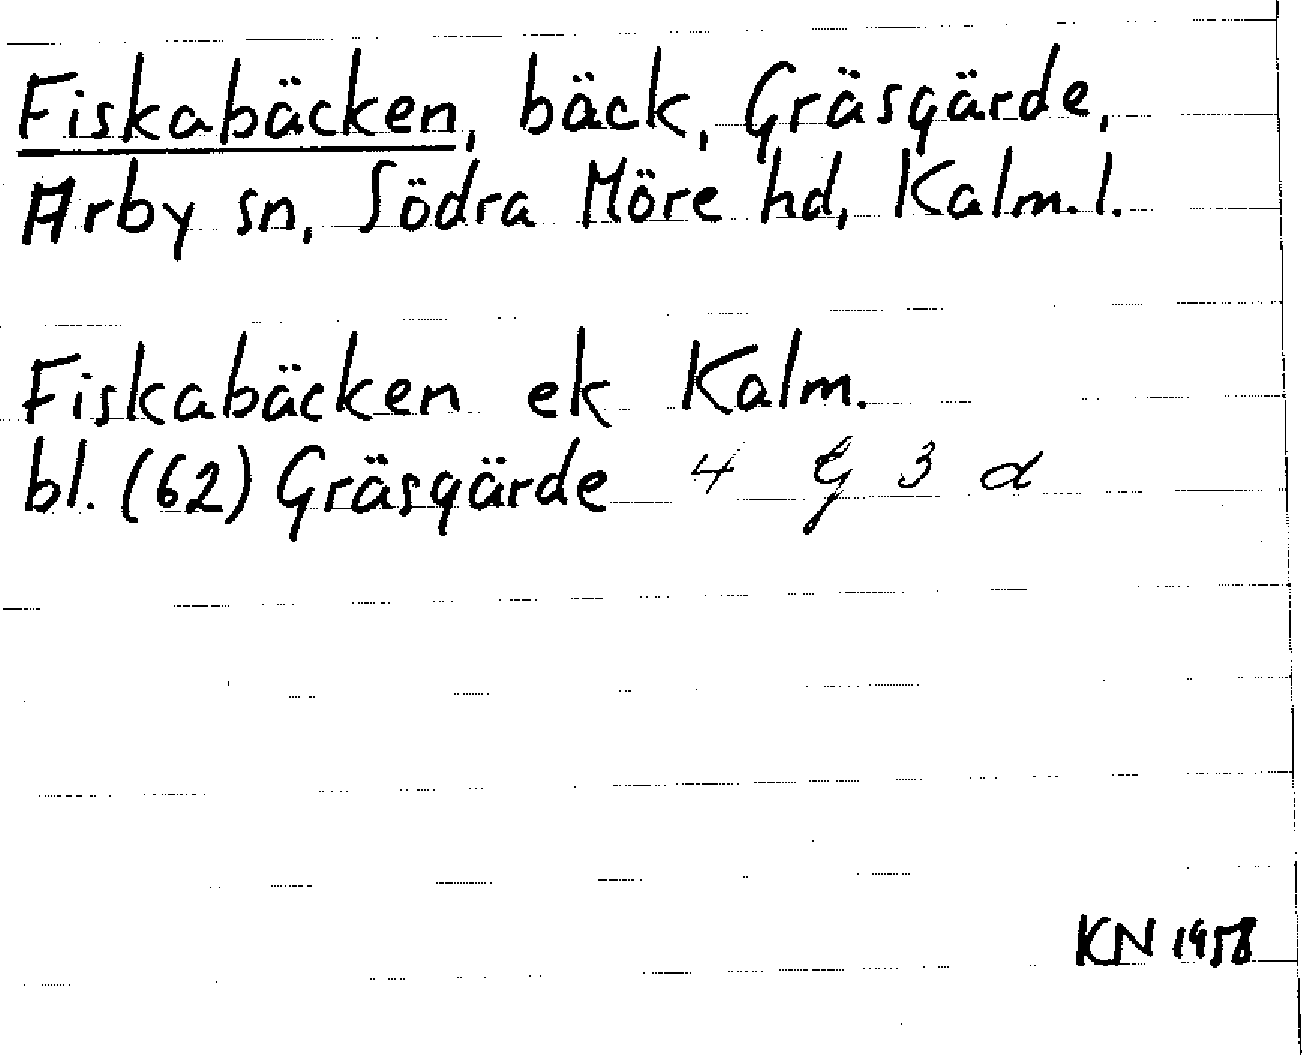 Fiskabäcken, bäck, Gräsgärde,
Arby sn, Södra Möre hd, Kalm.l.
Fiskabäcken ek Kalm.
bl. (62) Gräsgärde 4 G 3 d
KN 1958